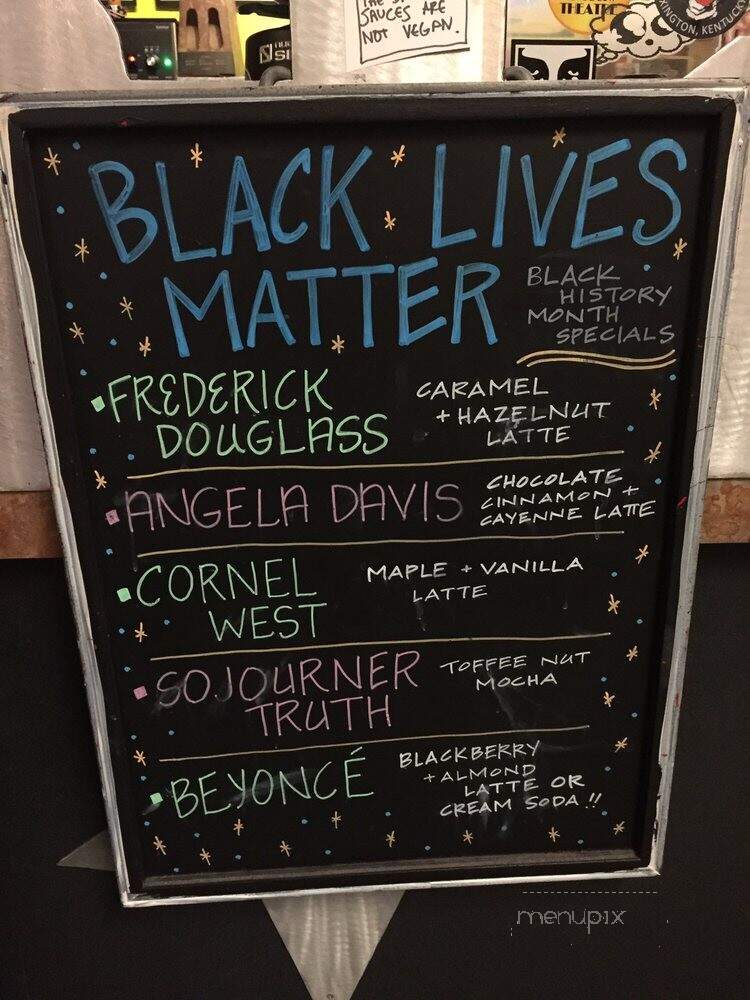 SAUCES ARE
NOT VEGAN.
THEATRE
KENTUCKY
BLACK LIVES
MATTER
BLACK
HISTORY
MONTH
SPECIALS
FREDERICK
DOUGLASS
CARAMEL
+ HAZELNUT
LATTE
ANGELA DAVIS
CHOCOLATE
CINNAMON +
CAYENNE LATTE
CORNEL
WEST
MAPLE + VANILLA
LATTE
SOJOURNER
TRUTH
TOFFEE NUT
MOCHA
BEYONCÉ
BLACKBERRY
+ ALMOND
LATTE OR
CREAM SODA !!
menupix